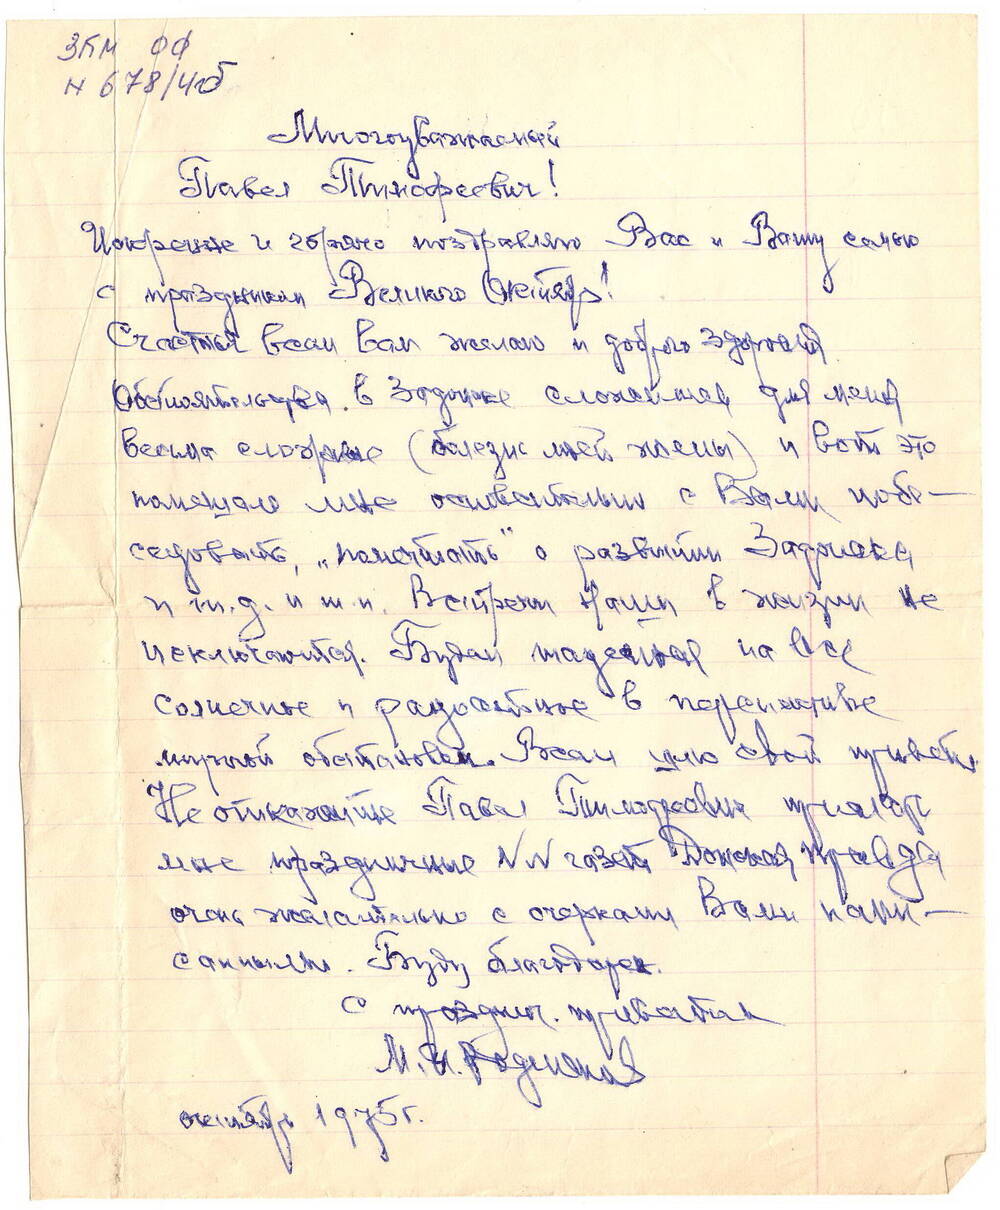 ЗКМ ОФ
N 678/46
Многоуважаемый
Павел Тимофеевич!
Искренне и горячо поздравляю Вас и Вашу семью
с праздником Великого Октября!
Счастья всем вам желаю и доброго здоровья
Обстоятельства в Задонске сложились для меня
весьма сложные (болезнь моей жены) и вот это
помешало мне основательно с Вами побе-
седовать, „помечтать" о развитии Задонска
и т.д. и т.п. Встречи наши в жизни не
исключаются. Будем надеяться на все
солнечные и радостные в перспективе
мирной обстановки. Всем шлю свой привет.
Не откажите Павел Тимофеевич прислать
мне праздничные NN газет Донская правда
очень желательно с очерками Вами напи-
санными. Буду благодарен.
С празднич. приветом
М.И.
октябрь 1975г.